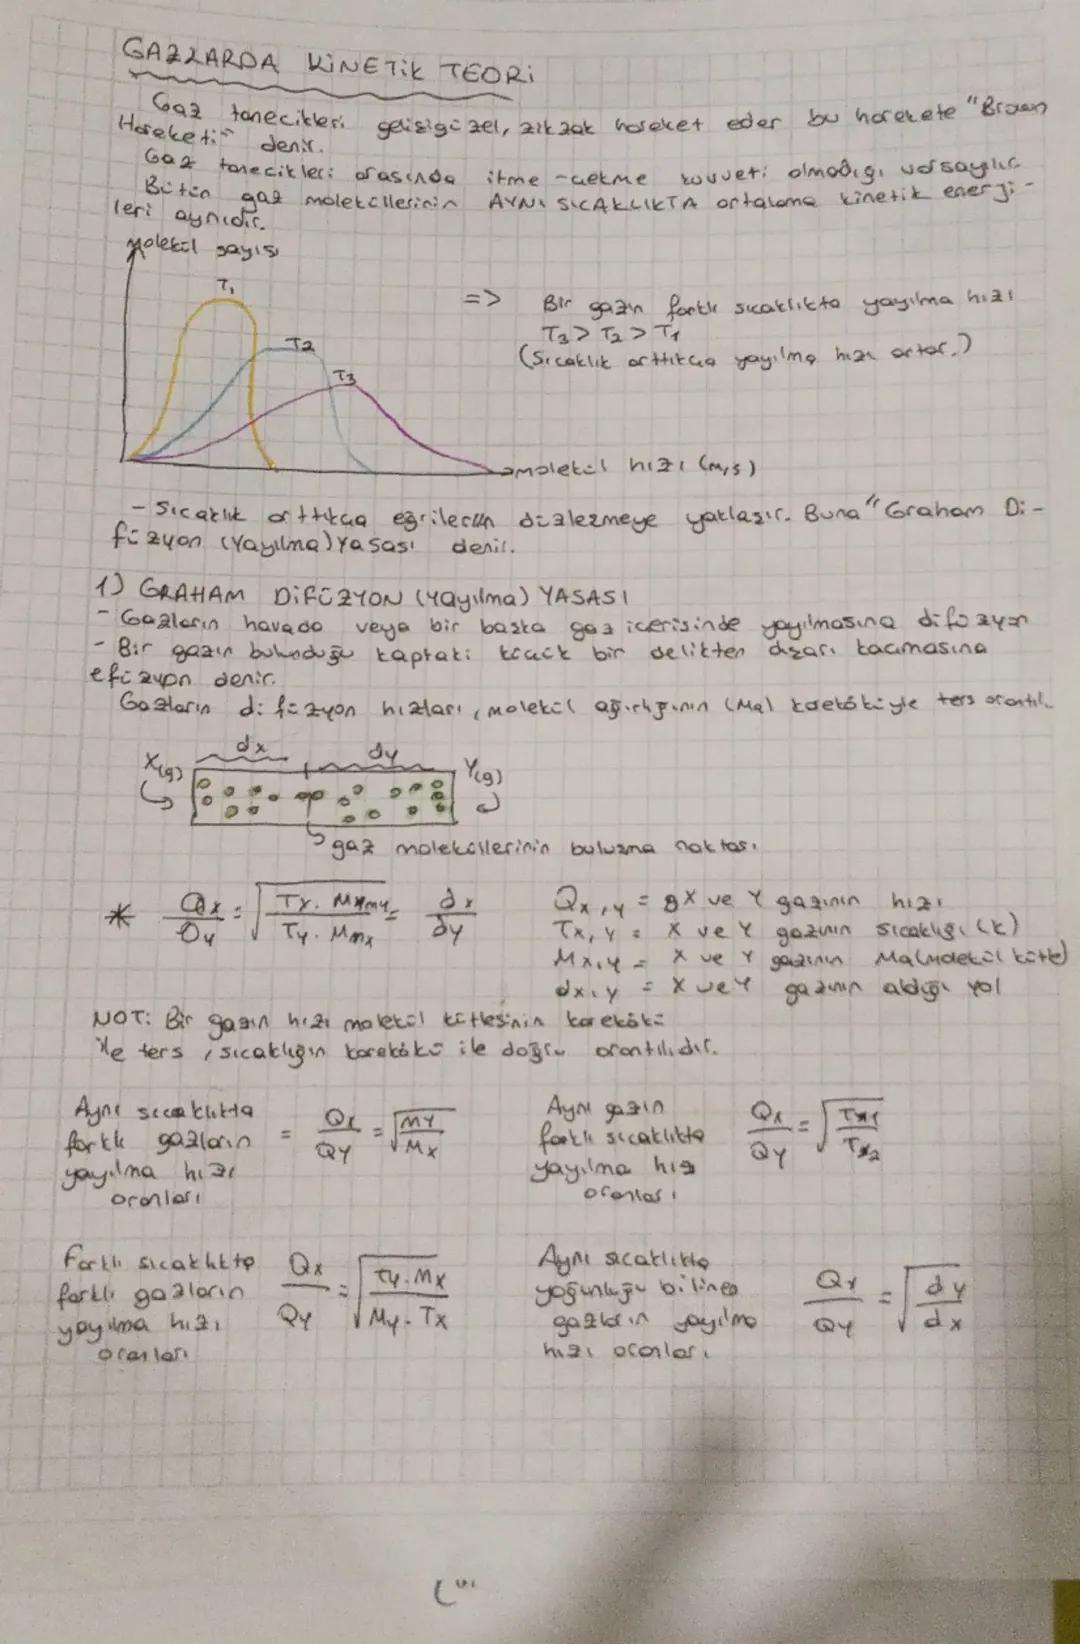 GAZLARDA KİNETİK TEORİ
Gaz tanecikleri gelişigüzel, zikzak hareket eder bu harekete "Brown
Hareketi" denir.
Gaz tanecikleri arasında itme-çekme kuvveti olmadığı varsayılır
Bütün gaz moleküllerinin AYNI SICAKLIKTA ortalama kinetik enerji-
leri aynıdır.
Molekül sayısı
T₁
T2
T3
=> Bir gazın farklı sıcaklıkta yayılma hızı
T₃ > T₂ > T₁
(Sıcaklık arttıkça yayılma hızı artar.)
molekül hızı (m/s)
- Sıcaklık arttıkça eğrilerin düzlezmeye yaklaşır. Buna "Graham Di-
füzyon (Yayılma) Yasası denir.
1) GRAHAM DİFÜZYON (Yayılma) YASASI
- Gazların havada veya bir başka gaz içerisinde yayılmasına difüzyon
- Bir gazın bulunduğu kaptaki küçük bir delikten dışarı kaçmasına
efüzyon denir.
Gazların difüzyon hızları, molekül ağırlığının (Ma) kareköküyle ters orantılı
dx dy
X(g) Y(g)
gaz moleküllerinin buluşma noktası
* Qx/Qy = √(Tx. My / Ty. Mx) = dx/dy
Qx,y = X ve Y gazının hızı
Tx,y = X ve Y gazının sıcaklığı (k)
Mx,y = X ve Y gazının Ma(Molekül kütle)
dx,y = X ve Y gazının aldığı yol
NOT: Bir gazın hızı molekül kütlesinin karekökü
ile ters, sıcaklığın karekökü ile doğru orantılıdır.
Aynı sıcaklıkta
farklı gazların
yayılma hızı
oranları
= Qx/QY = √(MY/Mx)
Aynı gazın
farklı sıcaklıkta
yayılma hız
oranları
Qx/QY = √(Tx1/Tx2)
Farklı sıcaklıkta
farklı gazların
yayılma hızı
oranları
Qx/Qy = √(Ty.Mx / My.Tx)
Aynı sıcaklıkta
yoğunluğu bilinen
gazların yayılma
hızı oranları
Qx/QY = √(dy/dx)